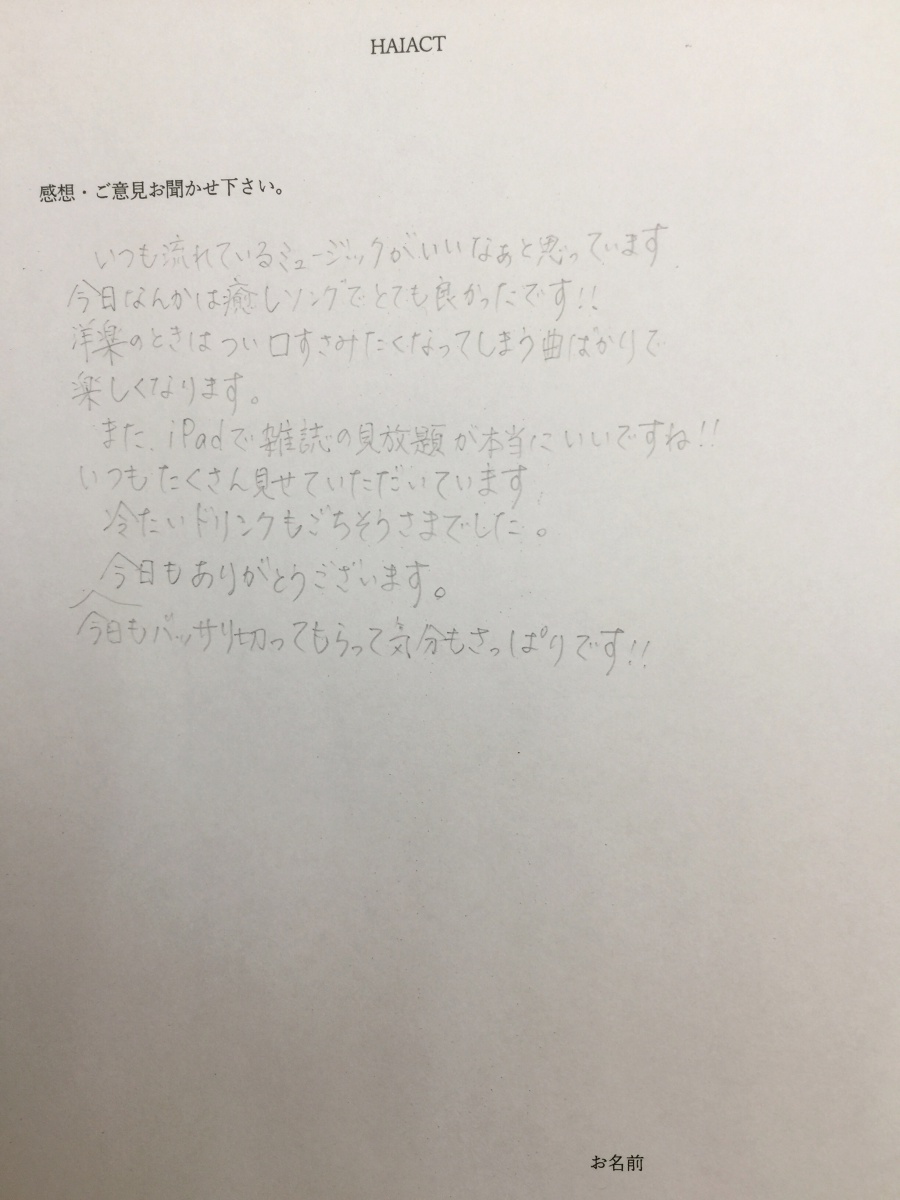 HAIACT
感想・ご意見お聞かせ下さい。
いつも流れているミュージックがいいなぁと思っています
今日なんかは癒しソングでとても良かったです!!
洋楽のときはつい口すさみたくなってしまう曲ばかりで
楽しくなります。
また、iPadで雑誌の見放題が本当にいいですね!!
いつもたくさん見せていただいています
冷たいドリンクもごちそうさまでした。
今日もありがとうございます。
今日もバッサリ切ってもらって気分もさっぱりです!!
お名前